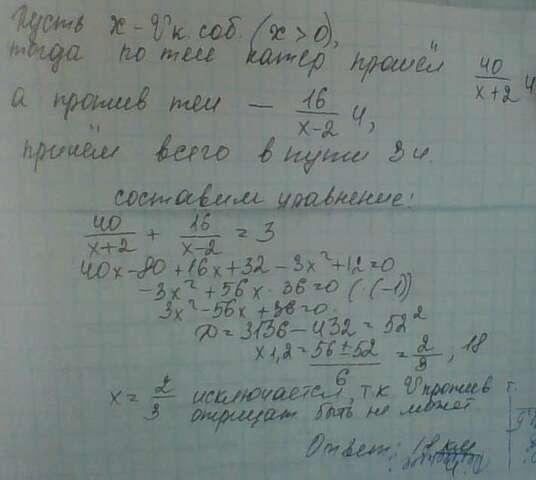 Пусть х - V к. соб. (х > 0),
тогда по теч катер прошёл 40/(x+2) ч
а против теч — 16/(x-2) ч,
причём всего в пути 3 ч.
составим уравнение:
40/(x+2) + 16/(x-2) = 3
40x-80+16x+32-3x²+12=0
-3x²+56x-36=0 (·(-1))
3x²-56x+36=0.
D=3136-432=52²
x1,2=(56±52)/6=2/3, 18
x=2/3 исключается, т.к V против т.
отрицат. быть не может
Ответ: 18 км/ч